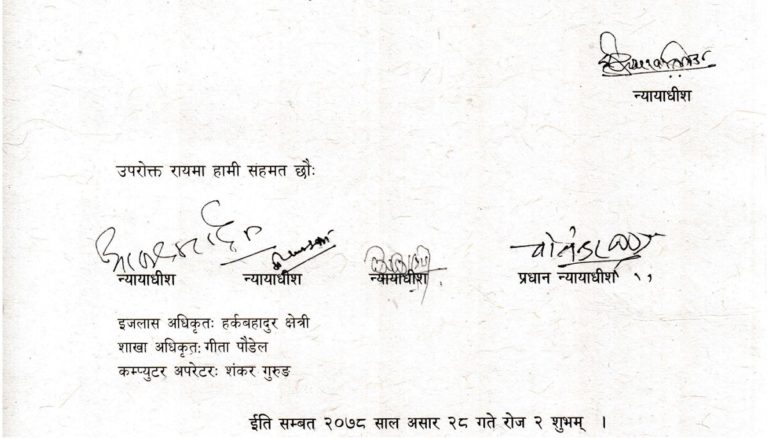 न्यायाधीश
उपरोक्त रायमा हामी सहमत छौः
न्यायाधीश न्यायाधीश न्यायाधीश प्रधान न्यायाधीश
इजलास अधिकृतः हर्कबहादुर क्षेत्री
शाखा अधिकृतः गीता पौडेल
कम्प्युटर अपरेटरः शंकर गुरुङ
ईति सम्बत २०७८ साल असार २८ गते रोज २ शुभम् ।